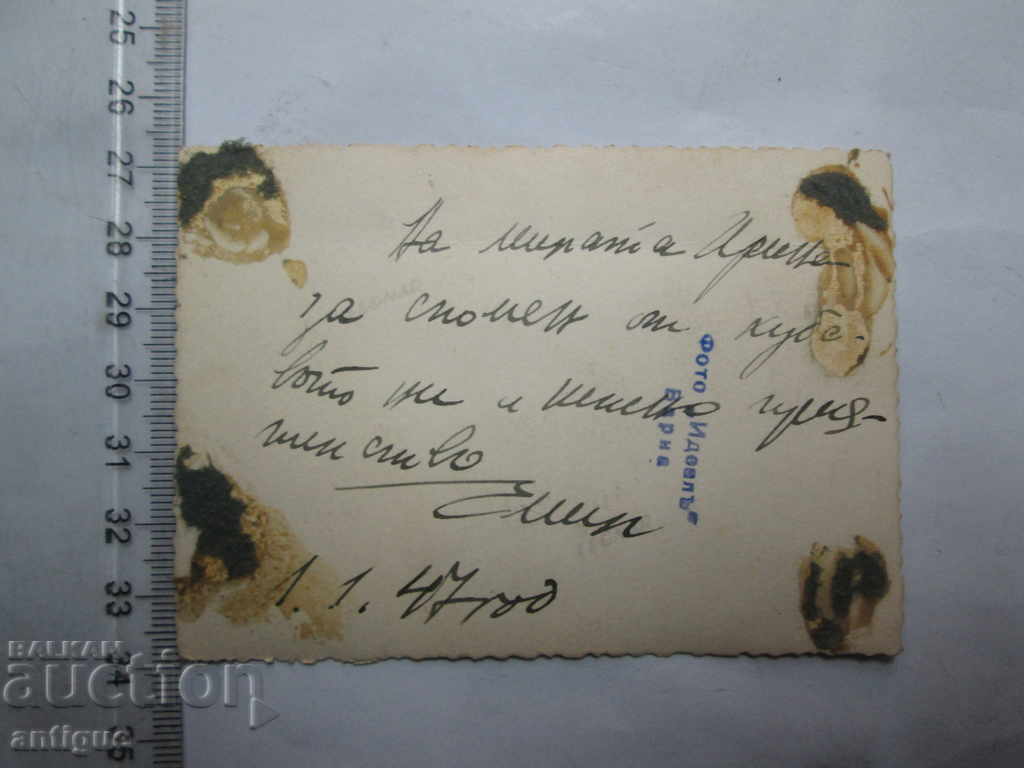 На милата Ирина
за спомен от хубе-
вото ни и нежно прия-
телство
Емир
1. 1. 47 год
Фото „Идеалъ“
Варна
25
26
27
28
29
30
31
32
33
34
35
BALKAN
auction
antique